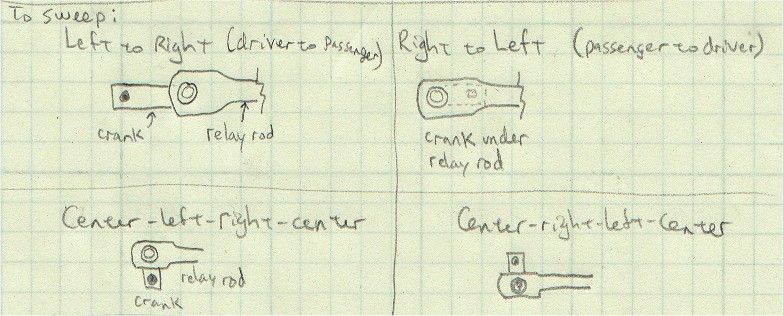 To sweep:
Left to Right (driver to Passenger)
crank
relay rod
Right to Left (passenger to driver)
crank under
relay rod
Center-left-right-center
relay rod
crank
Center-right-left-Center